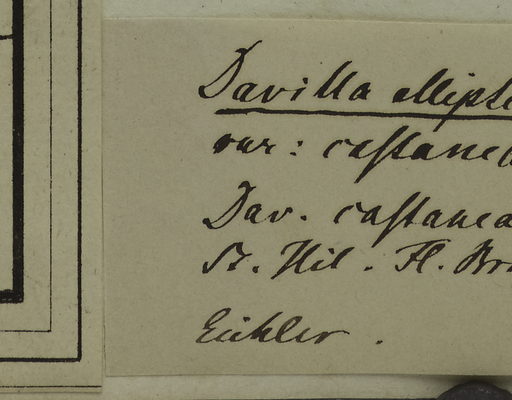 Davilla ellipti
var: castanea
Dav. castanea
St. Hil. Fl. Bra
Eichler.